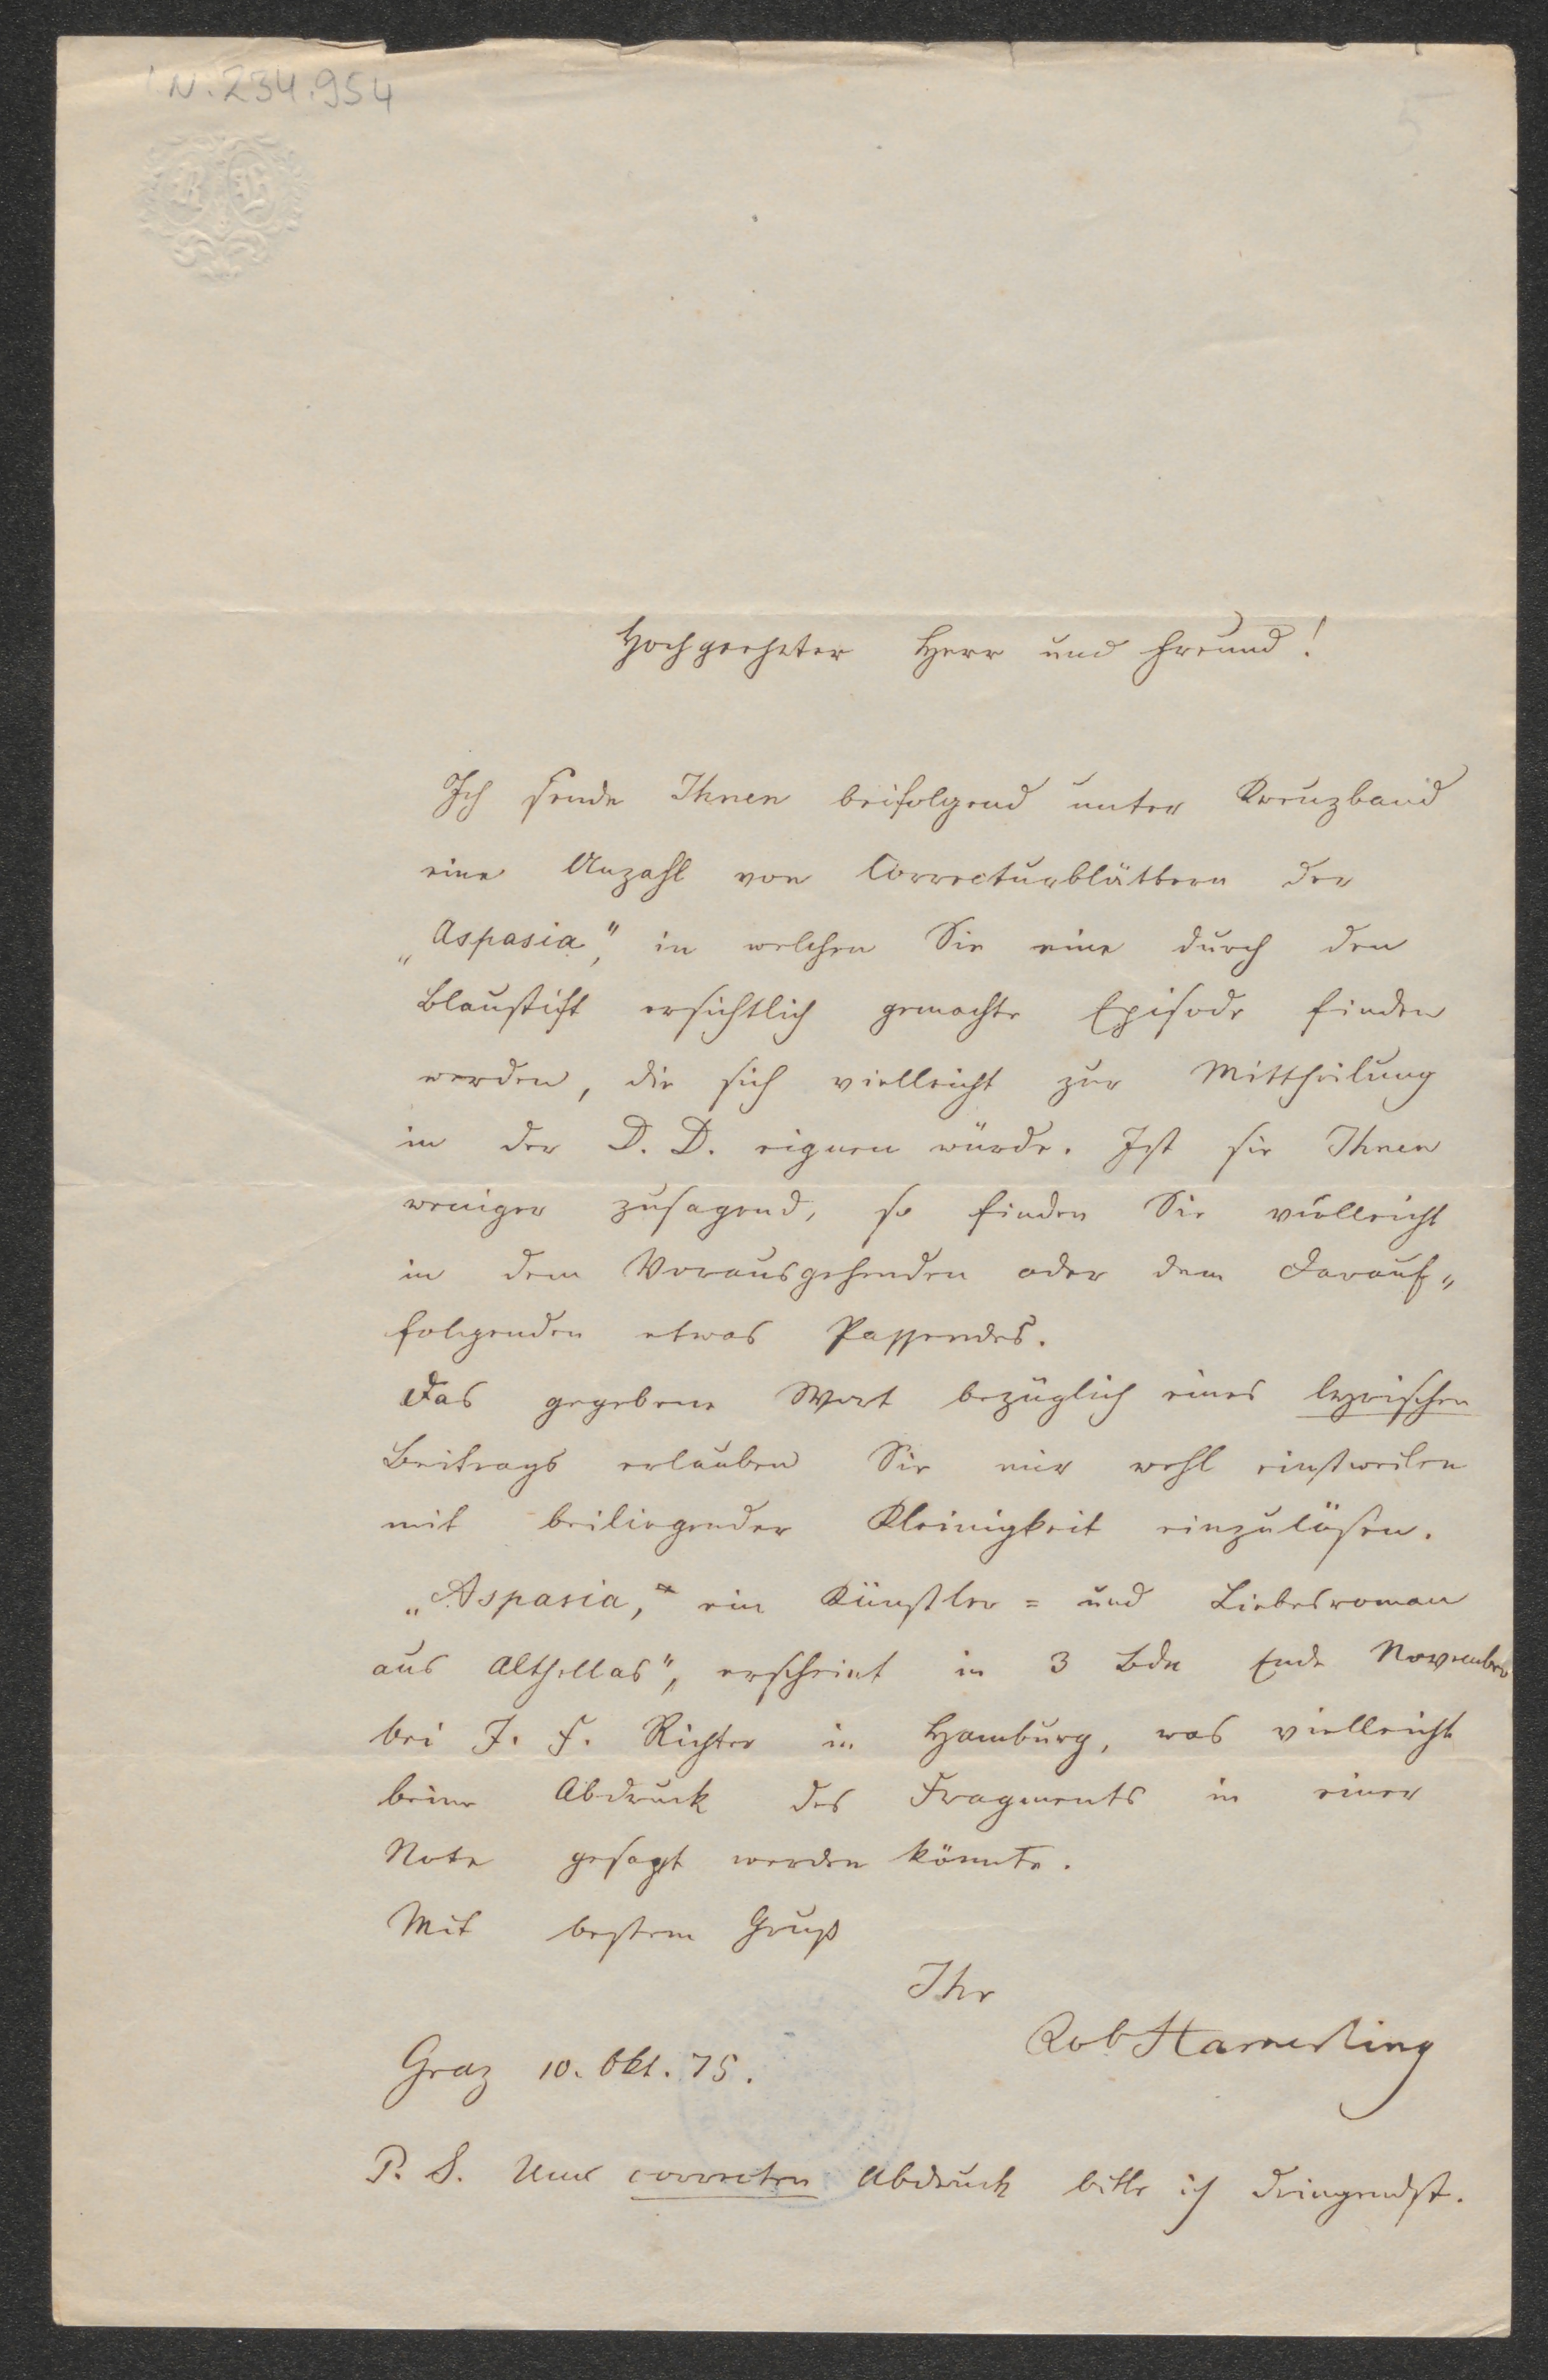 I.N. 234.954
5
R H
Hochgeehrter Herr und Freund!
Ich sende Ihnen beifolgend unter Kreuzband
eine Anzahl von Correcturblättern der
„Aspasia“, in welchen Sie eine durch den
Blaustift ersichtlich gemachte Episode finden
werden, die sich vielleicht zur Mittheilung
in der D. D. eignen würde. Ist sie Ihnen
weniger zusagend, so finden Sie vielleicht
in dem Vorausgehenden oder dem Darauf„
folgenden etwas Passendes.
Das gegebene Wort bezüglich eines lyrischen
Beitrags erlauben Sie mir wohl einstweilen
mit beiliegender Kleinigkeit einzulösen.
„Aspasia,“ ein Künstler= und Liebesroman
aus Althellas“, erscheint in 3 Bdn Ende November
bei J. F. Richter in Hamburg, was vielleicht
beim Abdruck des Fragments in einer
Note gesagt werden könnte.
Mit bestem Gruß
Ihr
Rob Hamerling
Graz 10. Okt. 75.
P. S. Um correcten Abdruck bitte ich dringendst.